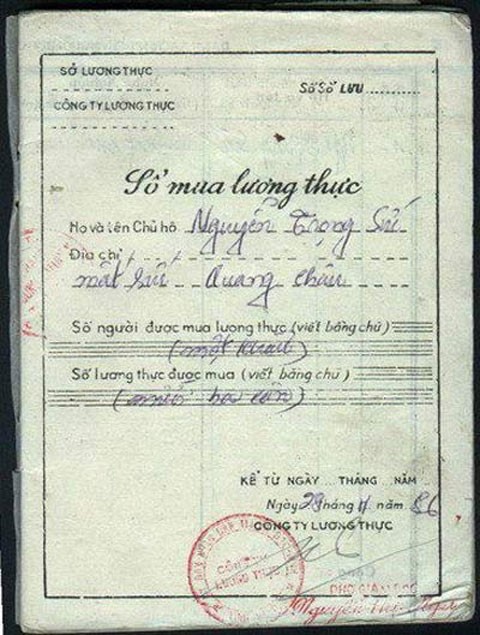 SỞ LƯƠNG THỰC
Số Sổ LƯU
CÔNG TY LƯƠNG THỰC
Sổ mua lương thực
Họ và tên Chủ hộ Nguyễn Trọng Sử
Địa chỉ
mất sứt Quang Châu
Số người được mua lương thực (viết bằng chữ)
(một khẩu)
Số lương thực được mua (viết bằng chữ)
(mười ba cân)
KỂ TỪ NGÀY ... THÁNG ... NĂM ...
Ngày 28 tháng 11 năm 86
CÔNG TY LƯƠNG THỰC
CÔNG TY
LƯƠNG THỰC
PHÓ GIÁM ĐỐC
Nguyễn